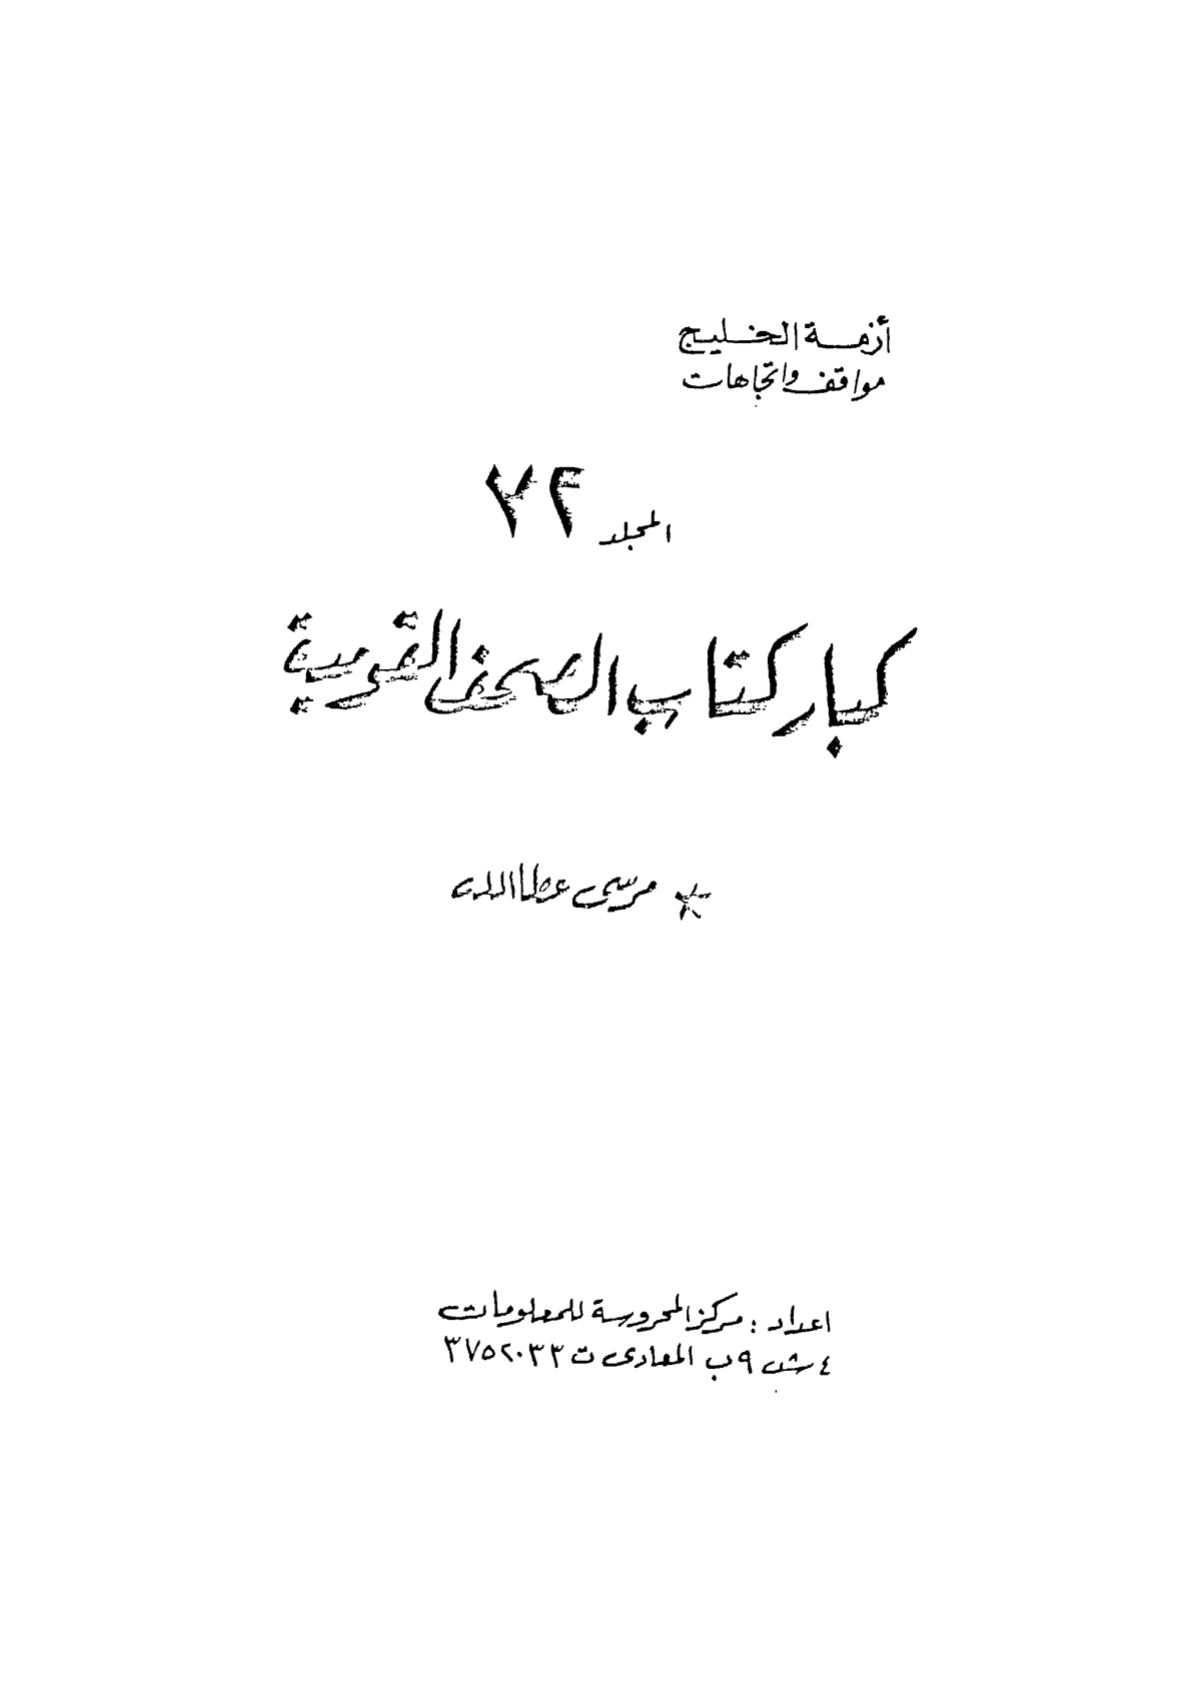 أزمة الخليج
مواقف واتجاهات
المجلد ٧٢
كبار كتاب الصحف القومية
* مرسى عطا الله
اعداد : مركز المحروسة للمعلومات
٤ ش ٩ ب المعادى ت ٣٧٥٢٠٣٣